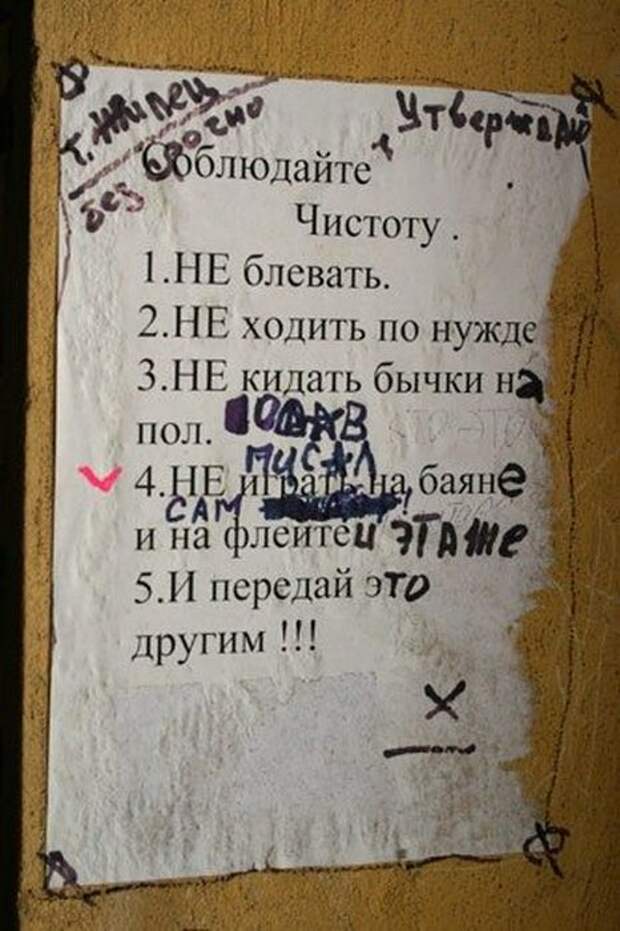 т. Жилец
без срочно
Утверждаю
Соблюдайте
Чистоту .
1.НЕ блевать.
2.НЕ ходить по нужде
3.НЕ кидать бычки на
пол.
ПИСАЛ
4.НЕ играть на баяне
САМ !
и на флейте и ЭТАЖе
5.И передай это
другим !!!